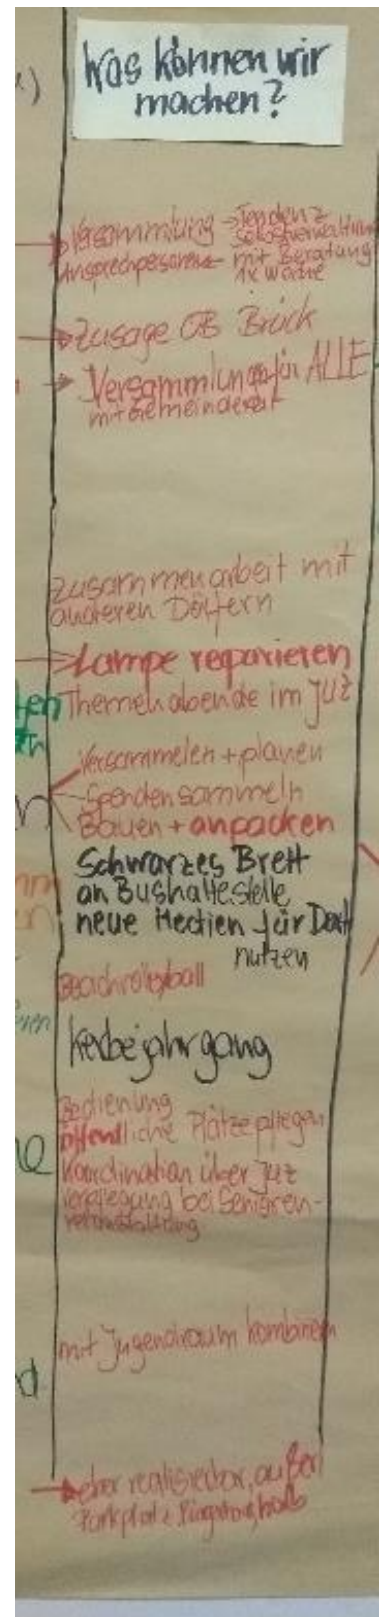 Was können wir
machen?
Versammlung → Tendenz
Selbstverwaltung
Ansprechpersonen mit Beratung
1x Woche
Zusage OB Brück
Versammlung für ALLE
mit Gemeinderat
Zusammenarbeit mit
anderen Dörfern
Lampe reparieren
Themenabende im JUZ
Versammelen + planen
Spenden sammeln
Bauen + anpacken
Schwarzes Brett
an Bushaltestelle
neue Medien für Dorf
nutzen
Beachvolleyball
Kerbejahrgang
Bedienung
öffentliche Plätze pflegen
Koordination über JUZ
Verpflegung bei Senioren-
veranstaltung
mit Jugendraum kombinieren
eher realisierbar, außer
Parkplatz